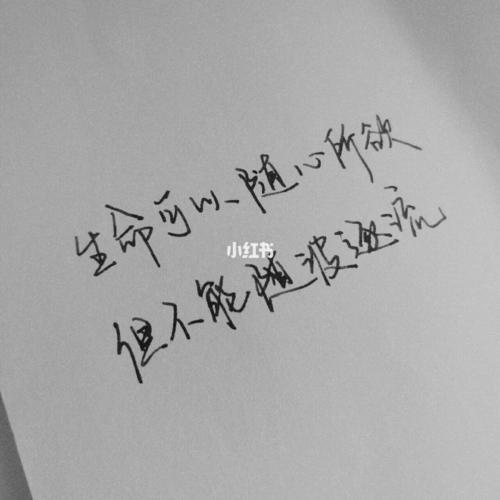 生命可以随心所欲
小红书
但不能随波逐流